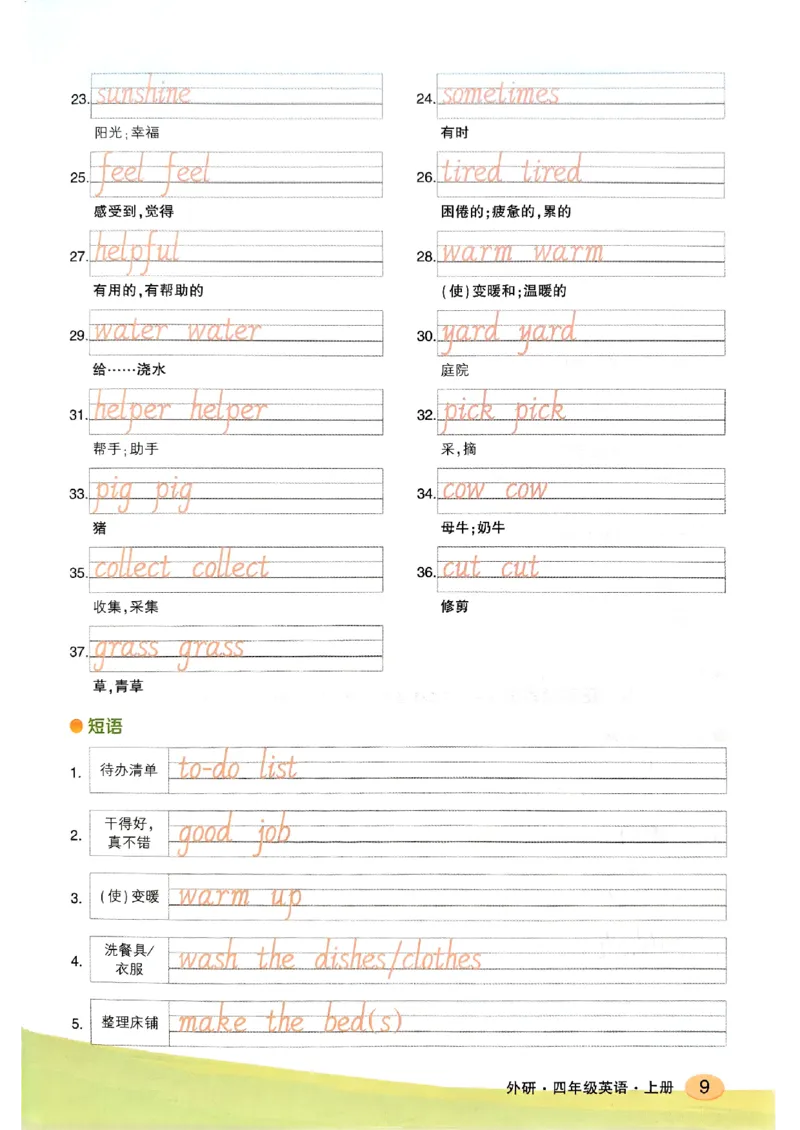 23. sunshine
阳光；幸福
24. sometimes
有时
25. feel feel
感受到，觉得
26. tired tired
困倦的；疲惫的，累的
27. helpful
有用的，有帮助的
28. warm warm
（使）变暖和；温暖的
29. water water
给……浇水
30. yard yard
庭院
31. helper helper
帮手；助手
32. pick pick
采，摘
33. pig pig
猪
34. cow cow
母牛；奶牛
35. collect collect
收集，采集
36. cut cut
修剪
37. grass grass
草，青草
短语
1. 待办清单 to-do list
2. 干得好，
真不错 good job
3. （使）变暖 warm up
4. 洗餐具/
衣服 wash the dishes/clothes
5. 整理床铺 make the bed(s)
外研·四年级英语·上册 9